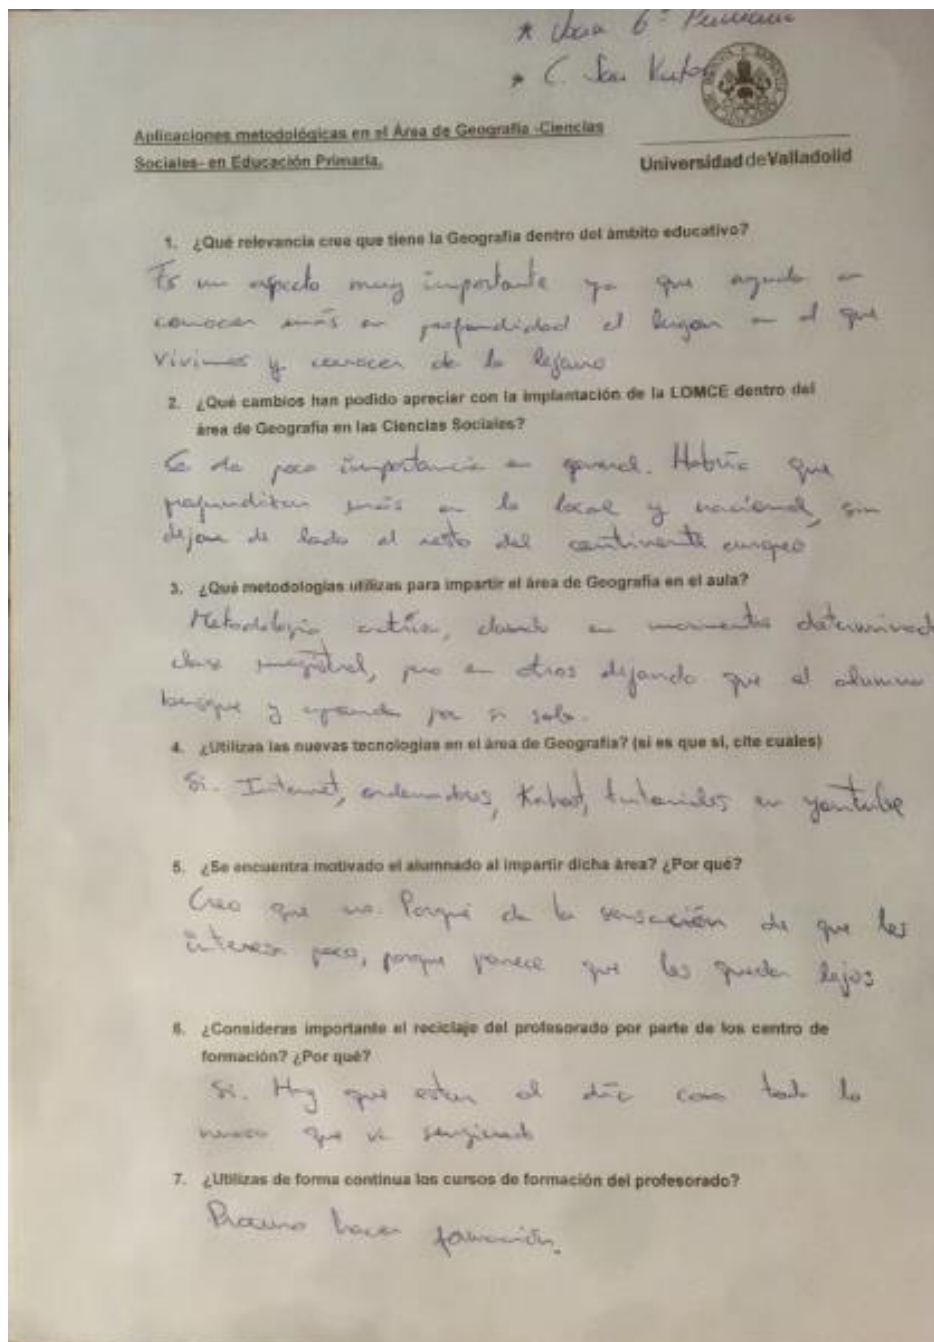 * 6º Primaria
* C. San
Universidad de Valladolid
Aplicaciones metodológicas en el Área de Geografía -Ciencias
Sociales- en Educación Primaria.
1. ¿Qué relevancia cree que tiene la Geografía dentro del ámbito educativo?
Es un aspecto muy importante ya que ayuda a
conocer más en profundidad el lugar en el que
vivimos y conocer de lo lejano
2. ¿Qué cambios han podido apreciar con la implantación de la LOMCE dentro del
área de Geografía en las Ciencias Sociales?
Se da poca importancia en general. Habría que
profundizar más en lo local y nacional, sin
dejar de lado al resto del continente europeo
3. ¿Qué metodologías utilizas para impartir el área de Geografía en el aula?
Metodología activa, dando en momentos determinad
clase magistral, pero en otros dejando que el alumno
busque y aprenda por si solo.
4. ¿Utilizas las nuevas tecnologías en el área de Geografía? (si es que si, cite cuales)
Si. Internet, ordenadores, Kahoot, tutoriales en youtube
5. ¿Se encuentra motivado el alumnado al impartir dicha área? ¿Por qué?
Creo que no. Porque da la sensación de que les
interesa poco, porque parece que les queda lejos
6. ¿Consideras importante el reciclaje del profesorado por parte de los centro de
formación? ¿Por qué?
Si. Hay que estar al día con todo lo
nuevo que va surgiendo
7. ¿Utilizas de forma continua los cursos de formación del profesorado?
Procuro hacer formación.